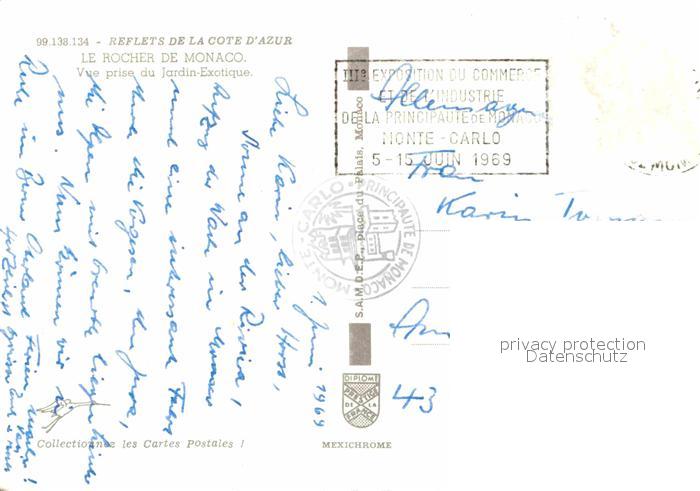 99.138.134 - REFLETS DE LA COTE D'AZUR
LE ROCHER DE MONACO.
Vue prise du Jardin-Exotique.
1. Juni 1969
Liebe Karin, lieber Horst,
Sonne an der Riviera,
Aufzug der Wache in Monaco
und eine interessante Fahrt
durch die Vogesen, den Jura,
die Alpen mit
uns. Nun können wir in
Ruhe im Ferien machen!
Collectionnez les Cartes Postales !
S.A.M.D.E.P., place du Palais, Monaco
MONTE-CARLO PRINCIPAUTE DE MONACO
DIPLOME
PRESTIGE
DE LA
FRANCE
MEXICHROME
IIIe EXPOSITION DU COMMERCE
ET DE L'INDUSTRIE
DE LA PRINCIPAUTE DE MONACO
MONTE-CARLO
5-15 JUIN 1969
Allemagne
Frau
Karin
43
privacy protection
Datenschutz